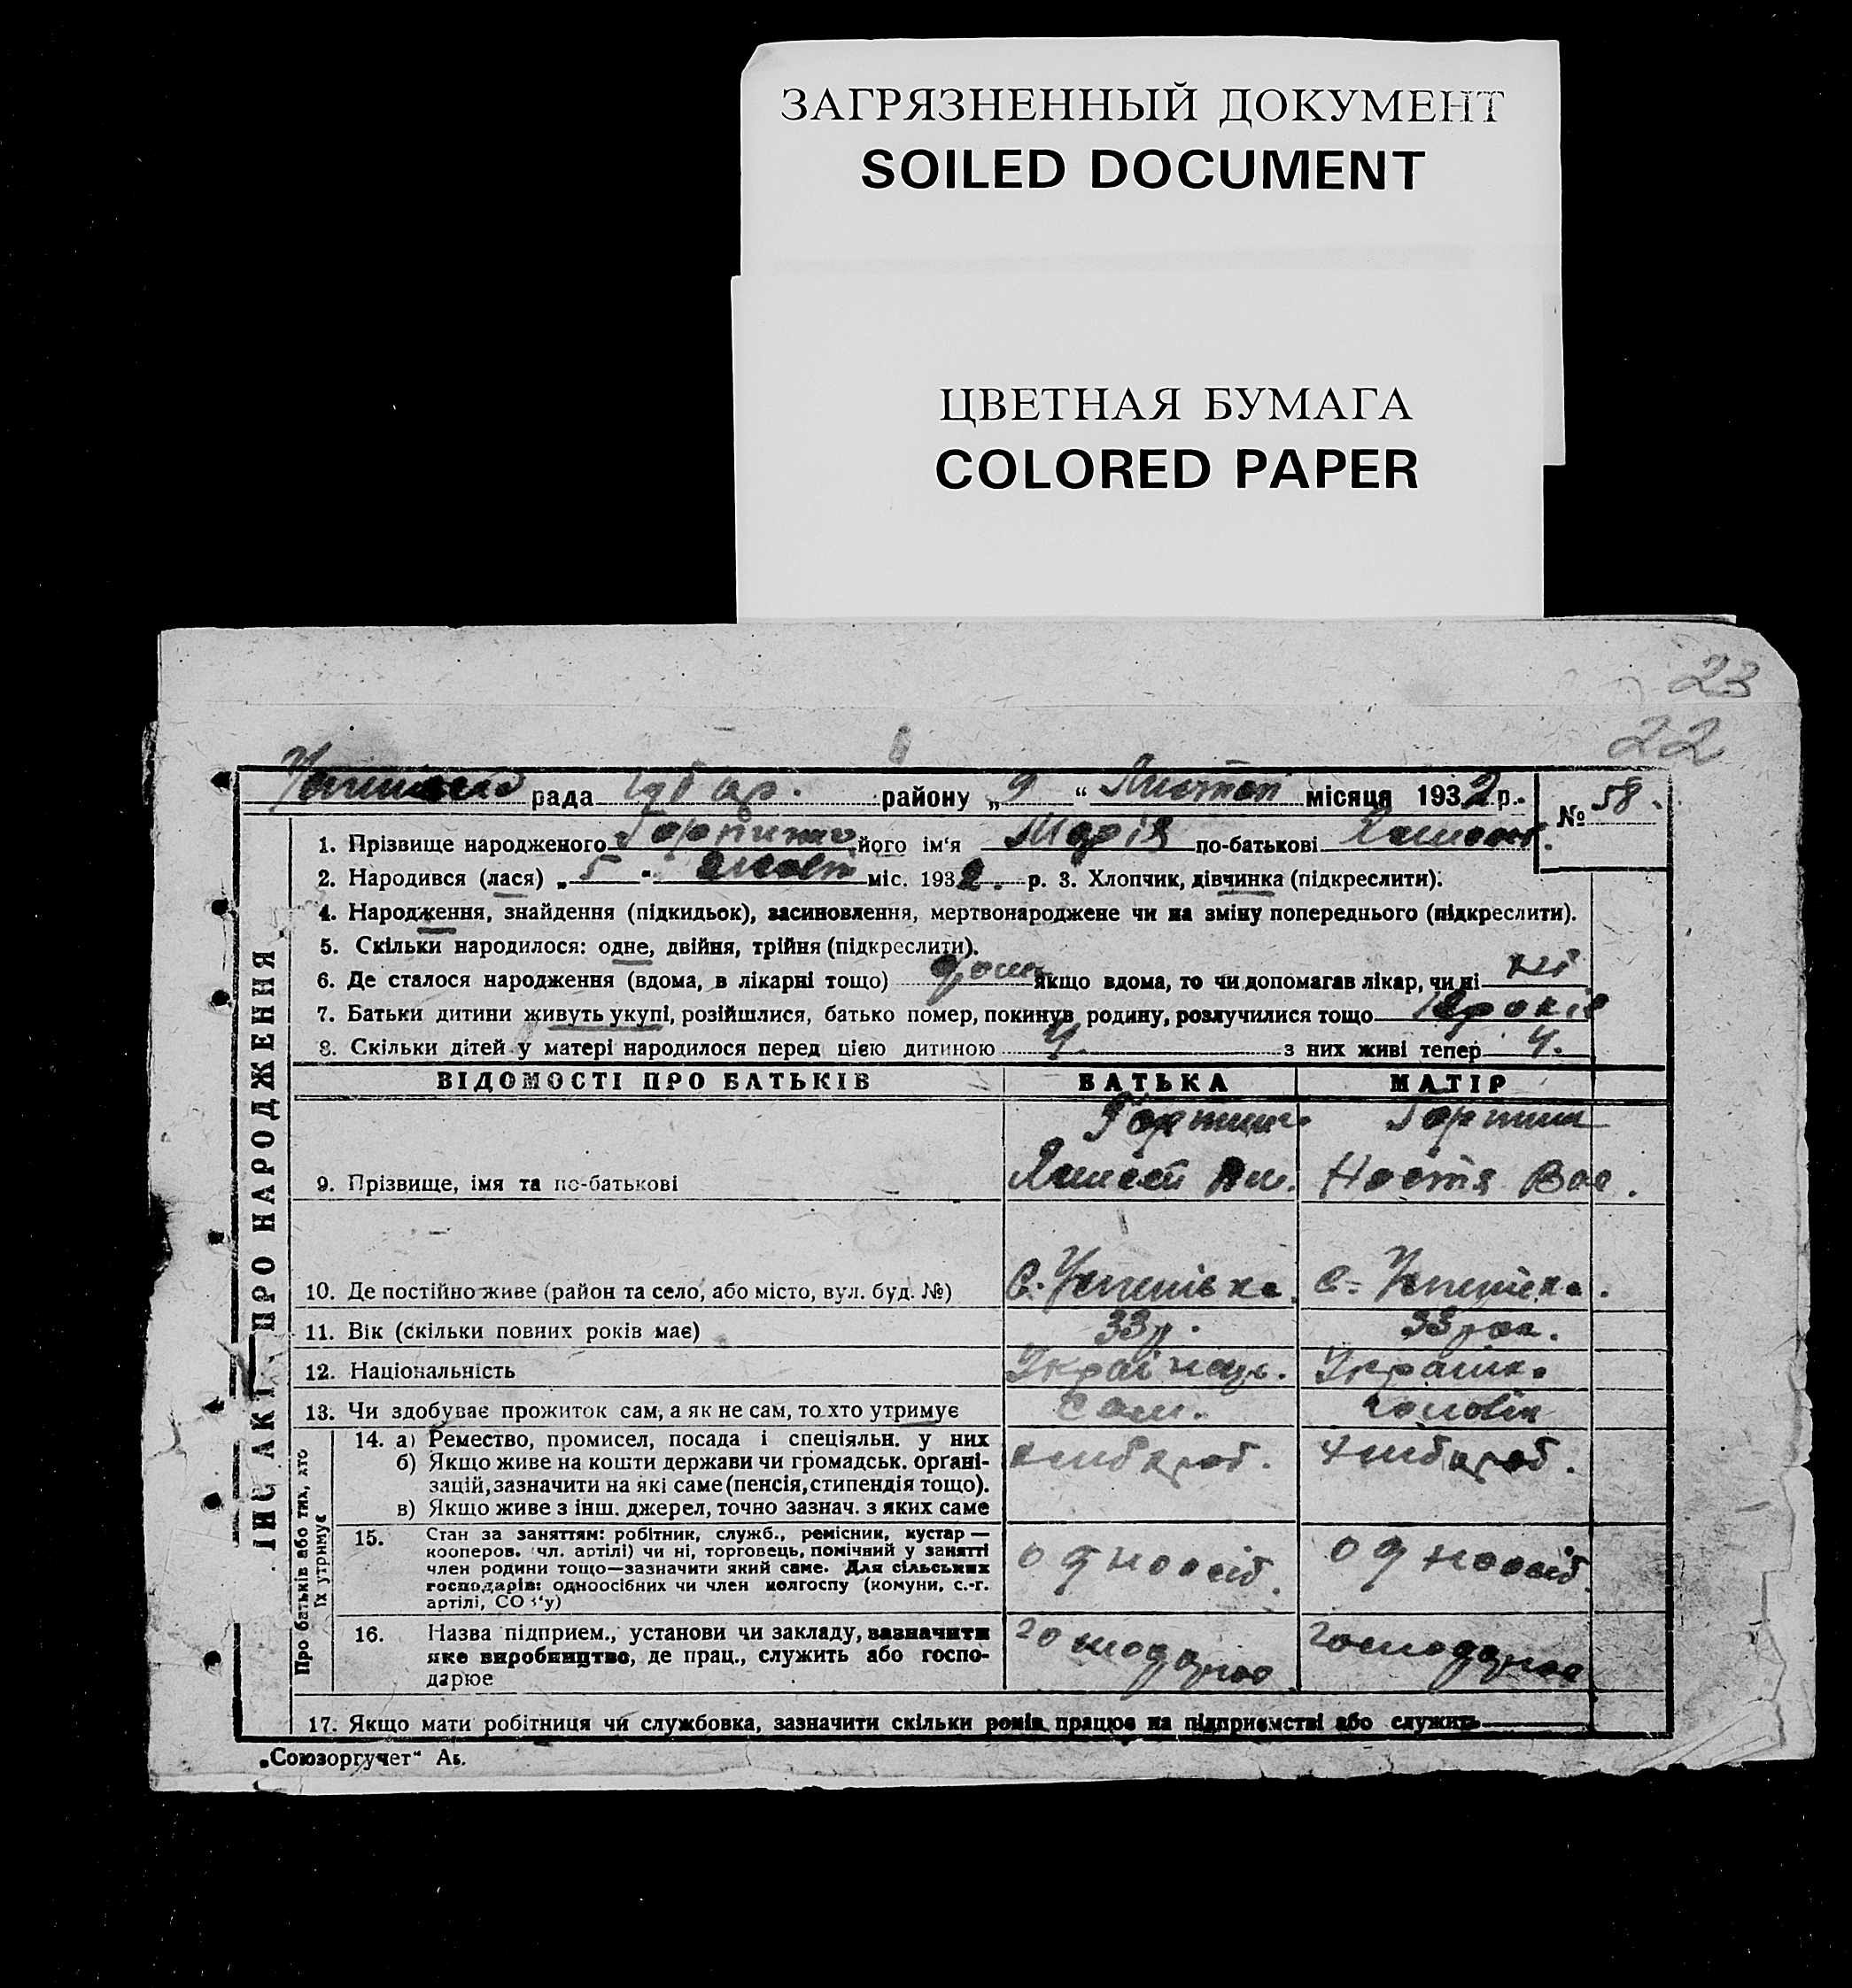 ЗАГРЯЗНЕННЫЙ ДОКУМЕНТ
SOILED DOCUMENT
ЦВЕТНАЯ БУМАГА
COLORED PAPER
23
22
рада районy „9“ місяця 1932 р. № 58.
1. Прізвище народженого його ім‘я Марія по-батькові
2. Народився (лася) „5 міс. 1932. р. 3. Хлопчик, дівчинка (підкреслити).
4. Народження, знайдення (підкидьок), засиновлення, мертвонароджене чи на зміну попереднього (підкреслити).
5. Скільки народилося: одне, двійня, трійня (підкреслити).
6. Де сталося народження (вдома, в лікарні тощо) якщо вдома, то чи допомагав лікар, чи ні ні
7. Батьки дитини живуть укупі, розійшлися, батько помер, покинув родину, розлучилися тощо років
8. Скільки дітей у матері народилося перед цією дитиною 4. з них живі тепер 4.
ВІДОМОСТІ ПРО БАТЬКІВ БАТЬКА МАТІР
9. Прізвище, імя та по-батькові Настя Вас.
10. Де постійно живе (район та село, або місто, вул. буд. №) с. Успенівка. с. Успенівка.
11. Вік (скільки повних років має) 33 р. 33 рок.
12. Національність Українець. Українк.
13. Чи здобуває прожиток сам, а як не сам, то хто утримує Сам. чоловік
14. а) Ремество, промисел, посада і спеціяльн. у них хлібароб. хлібароб.
б) Якщо живе на кошти держави чи громадськ. орґані-
зацій, зазначити на які саме (пенсія, стипендія тощо).
в) Якщо живе з інш. джерел, точно зазнач. з яких саме
15. Стан за заняттям: робітник, служб., ремісник, кустар —
кооперов. чл. артілі) чи ні, торговець, помічний у занятті
член родини тощо—зазначити який саме. Для сільських
господарів: одноосібних чи член колгоспу (комуни, с.-г.
артілі, СОЗ‘у) одноосіб. одноосіб.
16. Назва підприєм., установи чи закладу, зазначити
яке виробництво, де прац., служить або госпо-
дарює
17. Якщо мати робітниця чи службовка, зазначити скільки років працює на підприємстві або служить
„Союзоргучет“
ЗАПИС АКТ ПРО НАРОДЖЕННЯ
Про батьків або тих, хто
їх утримує